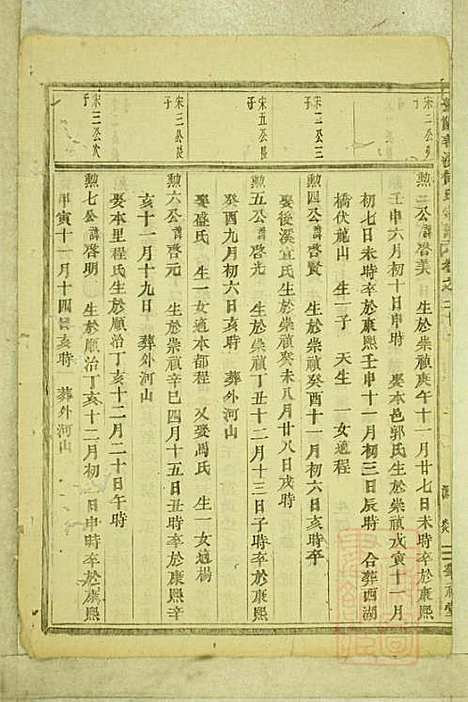 宋二公
子
勲三公諱啓美 生於崇禎庚午十一月廿七日未時卒於康熙
壬申六月初十日申時 娶本邑郭氏生於崇禎戊寅十一月
初七日未時卒於康熙壬申十一月初三日辰時 合葬西湖
橋伏龍山 生一子 天生 一女適程
宋二公三
子
勲四公諱啓賢 生於崇禎癸酉十一月初六日亥時卒
娶後溪宜氏生於崇禎癸未八月廿八日戌時
宋五公長
子
勲五公諱啓光 生於崇禎丁丑十二月十三日子時卒於康熙
癸酉九月初六日 葬外河山
娶盛氏 生一女適本都程 又娶馮氏 生一女適楊
宋三公長
子
勲六公諱啓元 生於崇禎辛巳四月十五日丑時卒於康熙辛
亥十一月十九日 葬外河山
娶本里程氏生於順治丁亥十二月二十日午時
宋三公次
子
勲七公諱啓明 生於順治丁亥十二月初二日申時卒於康熙
甲寅十一月十四日亥時 葬外河山